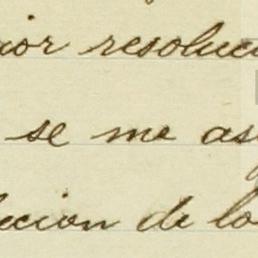 ior resoluci
se me as
ccion de lo